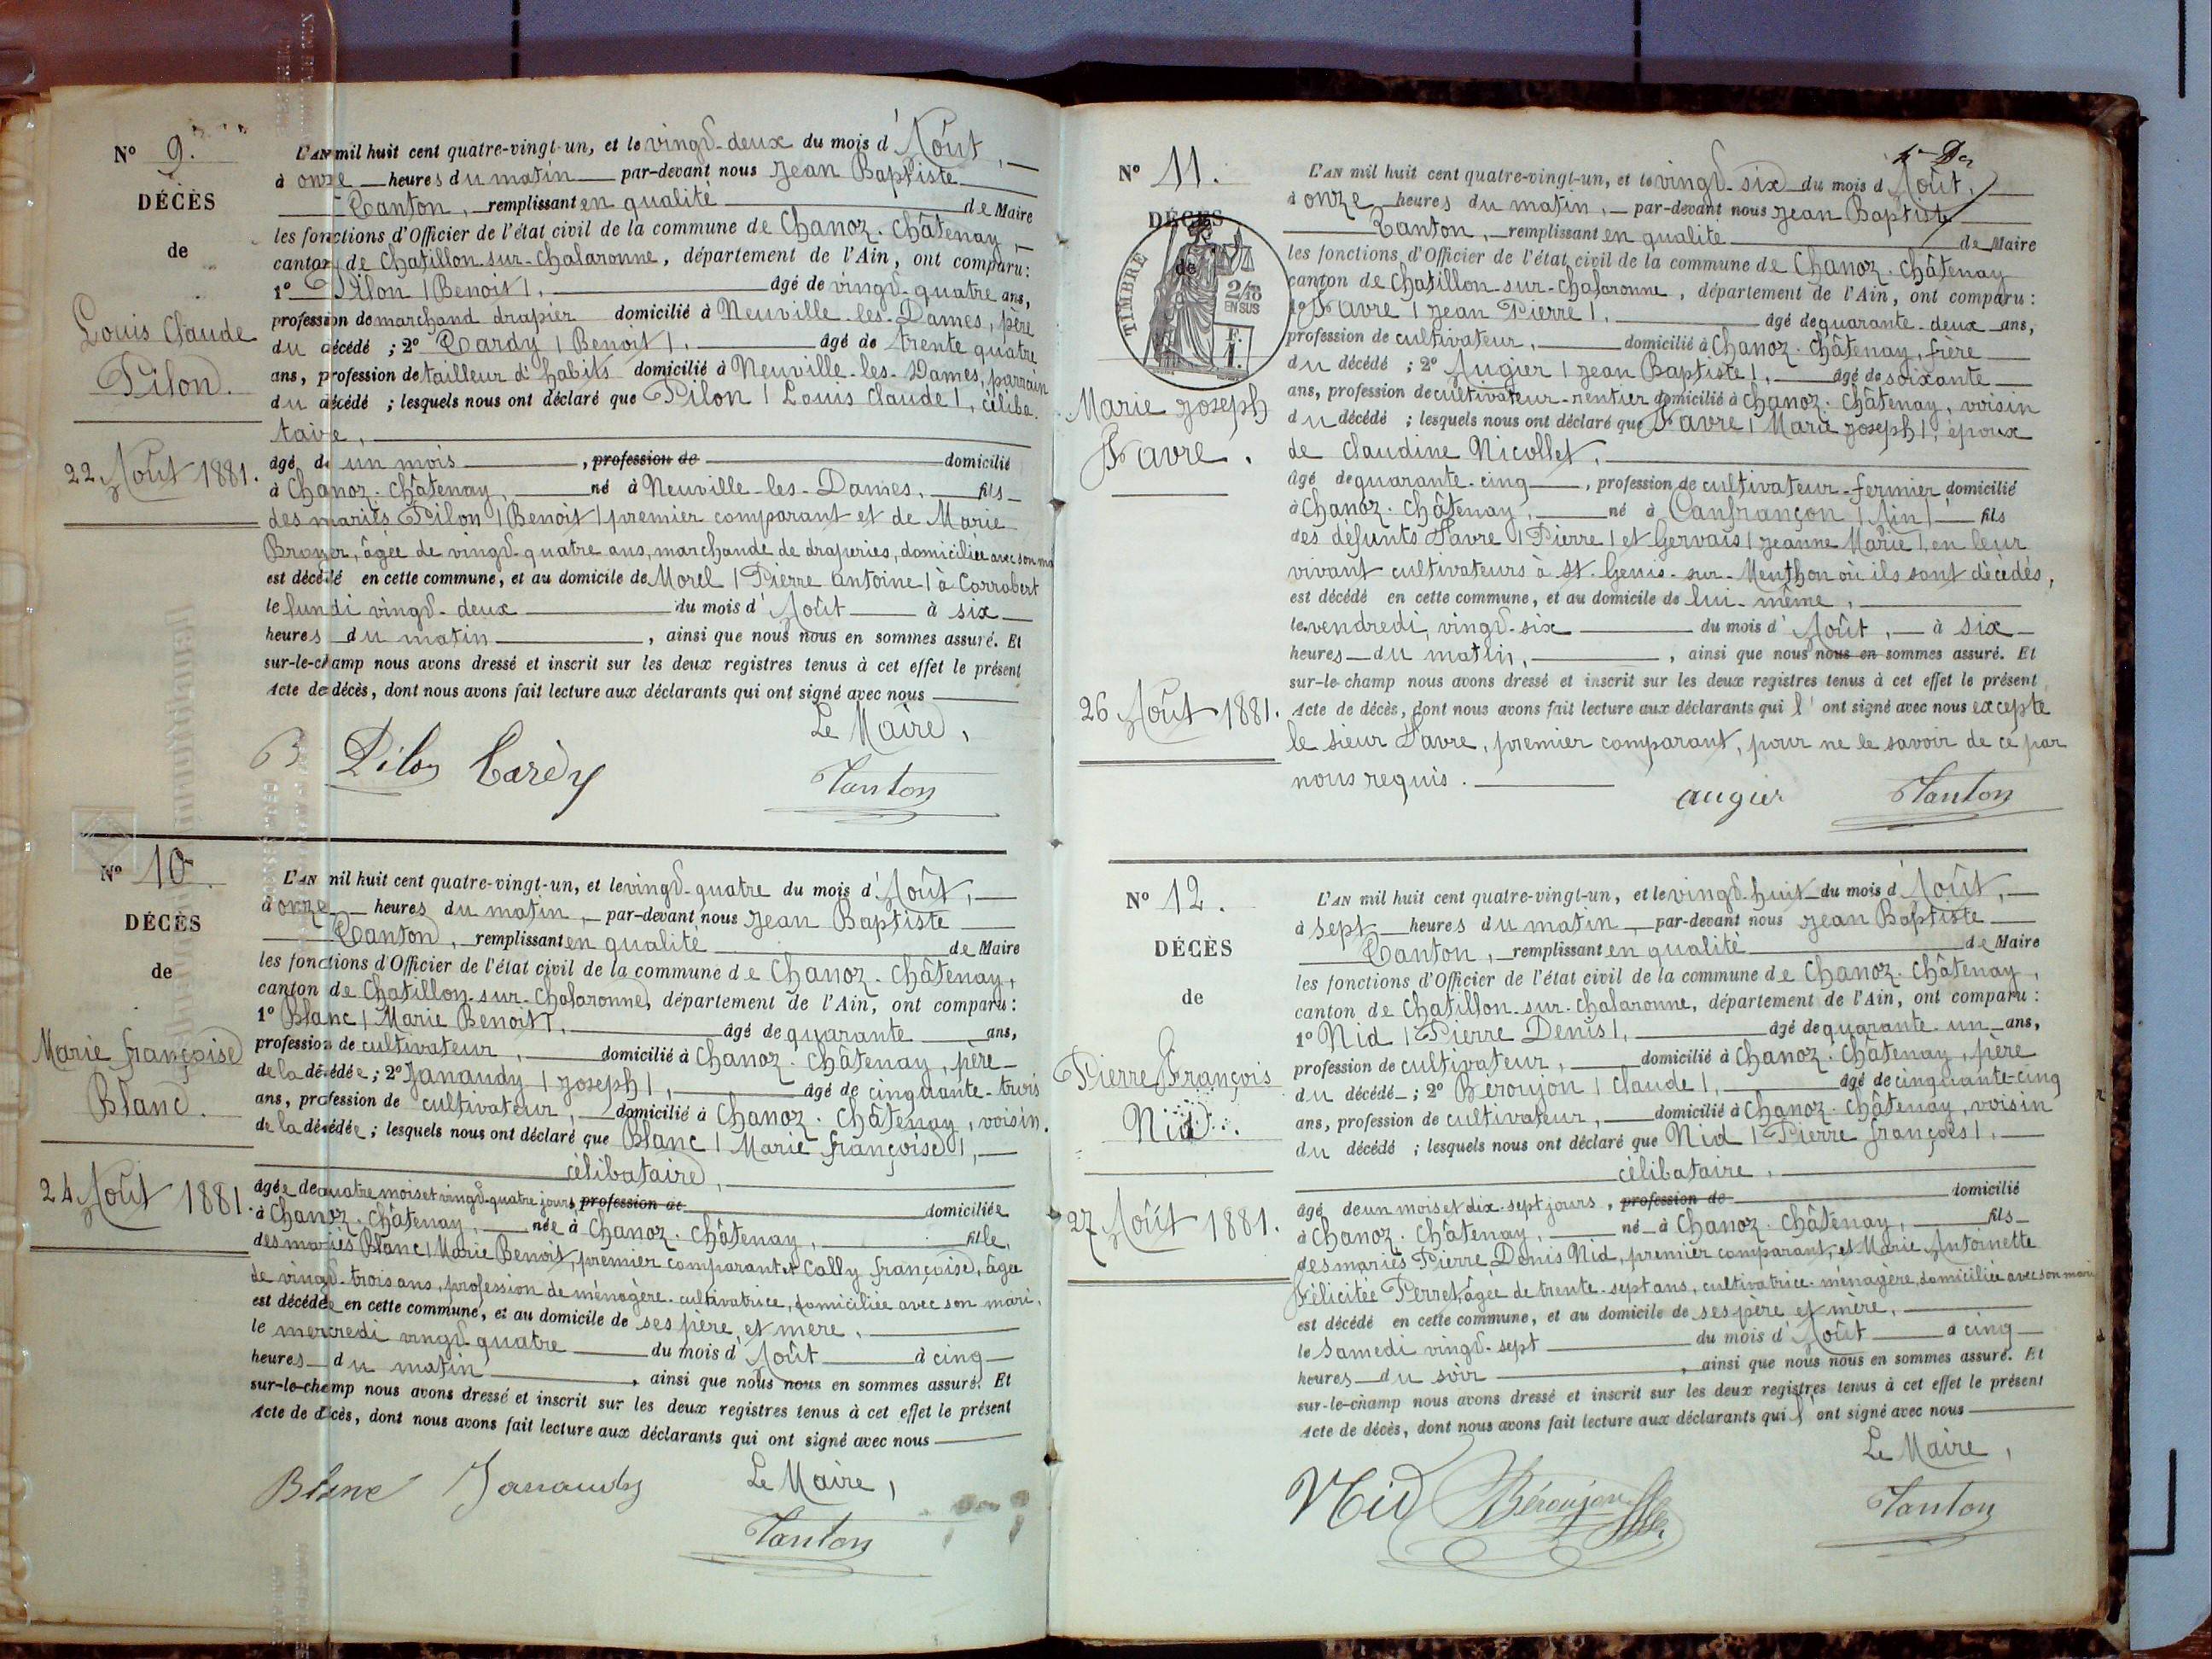 N° 9.
DÉCÈS
de
Louis Claude
Pilon.
22 Août 1881.
L'AN mil huit cent quatre-vingt-un, et le vingt-deux du mois d'Août,
à onze heures du matin par-devant nous Jean Baptiste
Tanton, remplissant en qualité de Maire
les fonctions d'Officier de l'état civil de la commune de Chanoz-Châtenay,
canton de Chatillon-sur-Chalaronne, département de l'Ain, ont comparu:
1° Pilon (Benoit), âgé de vingt-quatre ans,
profession de marchand drapier domicilié à Neuville-les-Dames, père
du décédé ; 2° Cardy (Benoit), âgé de trente quatre
ans, profession de tailleur d'habits domicilié à Neuville-les-Dames, parrain
du décédé ; lesquels nous ont déclaré que Pilon (Louis Claude), céliba-
taire,
âgé de un mois, profession de domicilié
à Chanoz-Châtenay, né à Neuville-les-Dames, fils
des mariés Pilon (Benoit) premier comparant et de Marie
Broyer, âgée de vingt-quatre ans, marchande de draperies, domiciliée avec son
est décédé en cette commune, et au domicile de Morel (Pierre Antoine) à Corrobert
le lundi vingt-deux du mois d'Août à six
heures du matin, ainsi que nous nous en sommes assuré. Et
sur-le-champ nous avons dressé et inscrit sur les deux registres tenus à cet effet le présent
Acte de décès, dont nous avons fait lecture aux déclarants qui ont signé avec nous
Le Maire,
B Pilon Cardy Tanton
N° 10.
DÉCÈS
de
Marie françoise
Blanc.
24 Août 1881.
L'AN mil huit cent quatre-vingt-un, et le vingt-quatre du mois d'Août,
à onze heures du matin, par-devant nous Jean Baptiste
Tanton, remplissant en qualité de Maire
les fonctions d'Officier de l'état civil de la commune de Chanoz-Châtenay,
canton de Chatillon-sur-Chalaronne, département de l'Ain, ont comparu:
1° Blanc (Marie Benoit), âgé de quarante ans,
profession de cultivateur, domicilié à Chanoz-Châtenay, père
de la décédée ; 2° Janaudy (Joseph), âgé de cinquante-trois
ans, profession de cultivateur, domicilié à Chanoz-Châtenay, voisin.
de la décédée ; lesquels nous ont déclaré que Blanc (Marie françoise),
célibataire,
âgée de quatre mois et vingt-quatre jours, profession de domiciliée
à Chanoz-Châtenay, née à Chanoz-Châtenay, fille,
des mariés Blanc (Marie Benoit, premier comparant et Cally françoise), âgée
de vingt-trois ans, profession de ménagère-cultivatrice, domiciliée avec son mari,
est décédée en cette commune, et au domicile de ses père et mère,
le mercredi vingt quatre du mois d'Août à cinq
heures du matin, ainsi que nous nous en sommes assuré. Et
sur-le-champ nous avons dressé et inscrit sur les deux registres tenus à cet effet le présent
Acte de décès, dont nous avons fait lecture aux déclarants qui ont signé avec nous
Le Maire,
Blanc Janaudy
Tanton
N° 11.
DÉCÈS
de
TIMBRE
2/10
EN SUS
F.
1.
Marie Joseph
Favre.
26 Août 1881.
L'AN mil huit cent quatre-vingt-un, et le vingt-six du mois d'Août,
à onze heures du matin, par-devant nous Jean Baptiste
Tanton, remplissant en qualité de Maire
les fonctions d'Officier de l'état civil de la commune de Chanoz-Châtenay
canton de Chatillon-sur-Chalaronne, département de l'Ain, ont comparu:
1° Favre (Jean Pierre), âgé de quarante-deux ans,
profession de cultivateur, domicilié à Chanoz-Châtenay, frère
du décédé ; 2° Augier (Jean Baptiste), âgé de soixante
ans, profession de cultivateur-rentier domicilié à Chanoz-Châtenay, voisin
du décédé ; lesquels nous ont déclaré que Favre (Marie Joseph), époux
de Claudine Nicollet,
âgé de quarante-cinq, profession de cultivateur-fermier domicilié
à Chanoz-Châtenay, né à Confrançon (Ain) fils
des défunts Favre (Pierre) et Gervais (Jeanne Marie), en leur
vivant cultivateurs à St. Genis-sur-Menthon où ils sont décédés,
est décédé en cette commune, et au domicile de lui-même,
le vendredi vingt-six du mois d'Août, à six
heures du matin, ainsi que nous nous en sommes assuré. Et
sur-le-champ nous avons dressé et inscrit sur les deux registres tenus à cet effet le présent
Acte de décès, dont nous avons fait lecture aux déclarants qui l'ont signé avec nous excepté
le sieur Favre, premier comparant, pour ne le savoir de ce par
nous requis.
augier Tanton
N° 12.
DÉCÈS
de
Pierre François
Nid.
27 Août 1881.
L'AN mil huit cent quatre-vingt-un, et le vingt-huit du mois d'Août,
à sept heures du matin par-devant nous Jean Baptiste
Tanton, remplissant en qualité de Maire
les fonctions d'Officier de l'état civil de la commune de Chanoz-Châtenay,
canton de Chatillon-sur-Chalaronne, département de l'Ain, ont comparu :
1° Nid (Pierre Denis), âgé de quarante-un ans,
profession de cultivateur, domicilié à Chanoz-Châtenay, père
du décédé ; 2° Béroujon (Claude), âgé de cinquante-cinq
ans, profession de cultivateur, domicilié à Chanoz-Châtenay, voisin
du décédé ; lesquels nous ont déclaré que Nid (Pierre françois),
célibataire,
âgé de un mois et dix-sept jours, profession de domicilié
à Chanoz-Châtenay, né à Chanoz-Châtenay, fils
des mariés Pierre Denis Nid, premier comparant, et Marie Antoinette
Félicitée Perret, âgée de trente-sept ans, cultivatrice-ménagère, domiciliée avec son mari
est décédé en cette commune, et au domicile de ses père et mère,
le Samedi vingt-sept du mois d'Août à cinq
heures du soir, ainsi que nous nous en sommes assuré. Et
sur-le-champ nous avons dressé et inscrit sur les deux registres tenus à cet effet le présent
Acte de décès, dont nous avons fait lecture aux déclarants qui l'ont signé avec nous
Le Maire,
Nid Béroujon Tanton